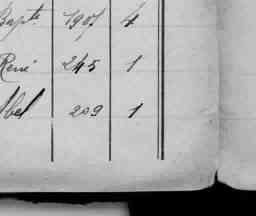 Bapt. 1907 4
René 245 1
Abel 209 1